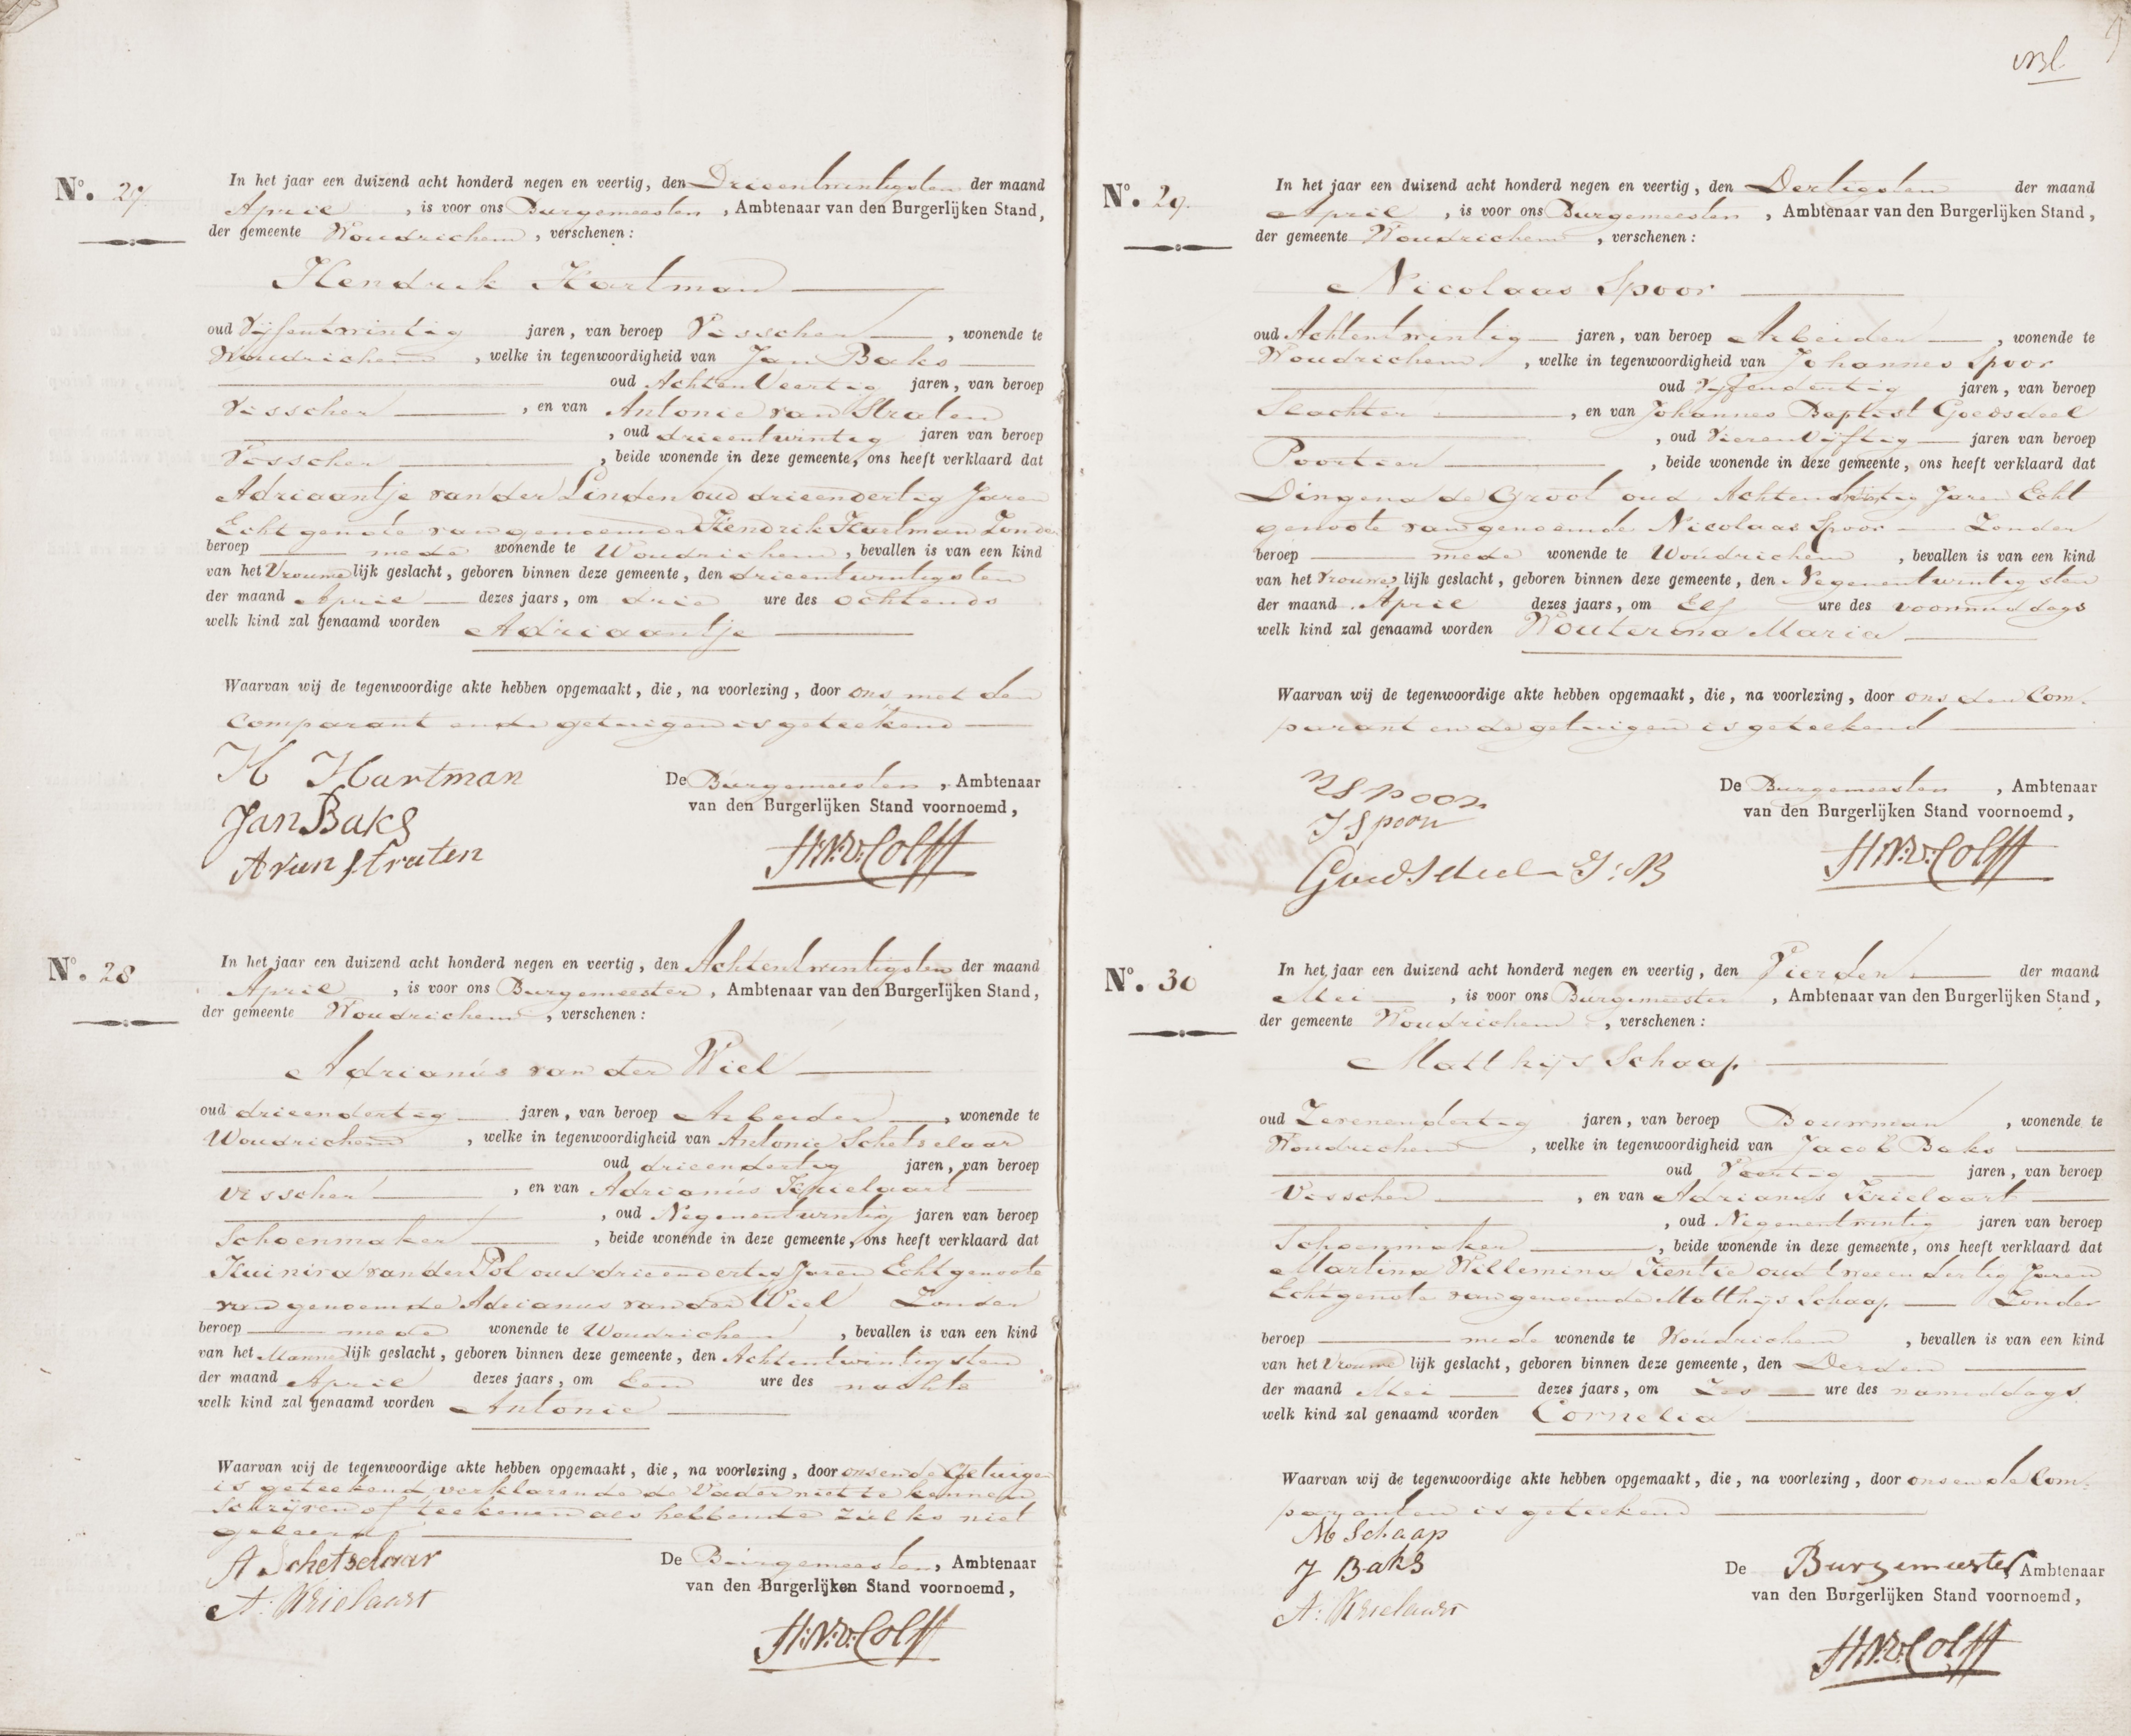 N°. 27.
In het jaar een duizend acht honderd negen en veertig, den Drieentwintigsten der maand
April , is voor ons Burgemeester , Ambtenaar van den Burgerlijken Stand,
der gemeente Woudrichem , verschenen:
Hendrik Hartman
oud Vijfentwintig jaren, van beroep Visscher , wonende te
Woudrichem , welke in tegenwoordigheid van Jan Baks
oud Achten Veertig jaren, van beroep
Visscher , en van Antonie van Straten
, oud drieentwintig jaren van beroep
Visscher , beide wonende in deze gemeente, ons heeft verklaard dat
Adriaantje van der Linden oud drieendertig Jaren
Echtgenote van genoemde Hendrik Hartman Zonder
beroep mede wonende te Woudrichem , bevallen is van een kind
van het Vrouwelijk geslacht, geboren binnen deze gemeente, den drieentwintigsten
der maand April dezes jaars, om drie ure des ochtends
welk kind zal genaamd worden Adriaantje
Waarvan wij de tegenwoordige akte hebben opgemaakt, die, na voorlezing, door ons met den
Comparant en de getuigen is geteekend
H Hartman
Jan Baks
A van Straten
De Burgemeester , Ambtenaar
van den Burgerlijken Stand voornoemd,
H:N:v:Colff
N°. 28
In het jaar een duizend acht honderd negen en veertig, den Achtentwintigsten der maand
April , is voor ons Burgemeester , Ambtenaar van den Burgerlijken Stand,
der gemeente Woudrichem , verschenen:
Adrianús van der Wiel
oud drieendertig jaren, van beroep Arbeider , wonende te
Woudrichem , welke in tegenwoordigheid van Antonie Schetselaar
oud drieendertig jaren, van beroep
Visscher , en van Adrianús Krielaart
, oud Negenentwintig jaren van beroep
Schoenmaker , beide wonende in deze gemeente, ons heeft verklaard dat
van der Pol oud drieendertig Jaren Echtgenoote
van genoemde Adrianus van der Wiel Zonder
beroep mede wonende te Woudrichem , bevallen is van een kind
van het Mannelijk geslacht, geboren binnen deze gemeente, den Achtentwintigsten
der maand April dezes jaars, om Een ure des nachts
welk kind zal genaamd worden Antonie
Waarvan wij de tegenwoordige akte hebben opgemaakt, die, na voorlezing, door ons en de Getuigen
is geteekend verklarende de Vader niet te kennen
Schrijven of teekenen als hebbende zulks niet
geleerd
A Schetselaar
A: Krielaart
De Burgemeester, Ambtenaar
van den Burgerlijken Stand voornoemd,
H:N:v:Colff
N°. 29.
In het jaar een duizend acht honderd negen en veertig, den Dertigsten der maand
April , is voor ons Burgemeester , Ambtenaar van den Burgerlijken Stand,
der gemeente Woudrichem , verschenen:
Nicolaas Spoor
oud Achtentwintig jaren, van beroep Arbeider , wonende te
Woudrichem , welke in tegenwoordigheid van Johannes Spoor
oud Vijfendertig jaren, van beroep
Slachter , en van Johannes Baptist Goedsdeel
, oud Vierenvijftig jaren van beroep
Poortier , beide wonende in deze gemeente, ons heeft verklaard dat
Dingena de Groot oud Jaren Echt
genoote van genoemde Nicolaas Spoor Zonder
beroep mede wonende te Woudrichem , bevallen is van een kind
van het Vrouwelijk geslacht, geboren binnen deze gemeente, den Negenentwintigsten
der maand April dezes jaars, om Elf ure des voormiddags
welk kind zal genaamd worden Wouterina Maria
Waarvan wij de tegenwoordige akte hebben opgemaakt, die, na voorlezing, door ons den Com-
parant en de getuigen is geteekend
N Spoor
J Spoor
Goedsdeel J:B
De Burgemeester , Ambtenaar
van den Burgerlijken Stand voornoemd,
H:N:v:Colff
N°. 30
In het jaar een duizend acht honderd negen en veertig, den Vierden der maand
Mei , is voor ons Burgemeester , Ambtenaar van den Burgerlijken Stand,
der gemeente Woudrichem , verschenen:
Matthijs Schaap
oud Zevenendertig jaren, van beroep Bouwman , wonende te
Woudrichem , welke in tegenwoordigheid van Jacob Baks
oud Veertig jaren, van beroep
Visscher , en van Adrianus Krielaart
, oud Negenentwintig jaren van beroep
Schoenmaker , beide wonende in deze gemeente, ons heeft verklaard dat
Martina Willemina Kentie oud tweeendertig Jaren
Echtgenote van genoemde Matthijs Schaap Zonder
beroep mede wonende te Woudrichem , bevallen is van een kind
van het Vrouwelijk geslacht, geboren binnen deze gemeente, den Derden
der maand Mei dezes jaars, om Zes ure des namiddags
welk kind zal genaamd worden Cornelia
Waarvan wij de tegenwoordige akte hebben opgemaakt, die, na voorlezing, door ons en de Com-
paranten is geteekend
M Schaap
J Baks
A: Krielaart
De Burgemeester, Ambtenaar
van den Burgerlijken Stand voornoemd,
H:N:v:Colff